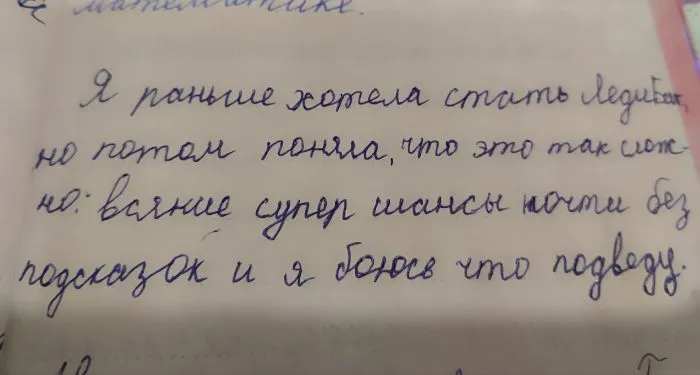 математике.
Я раньше хотела стать ЛедиБаг,
но потом поняла, что это так слож-
но: всякие супер шансы почти без
подсказок и я боюсь что подведу.